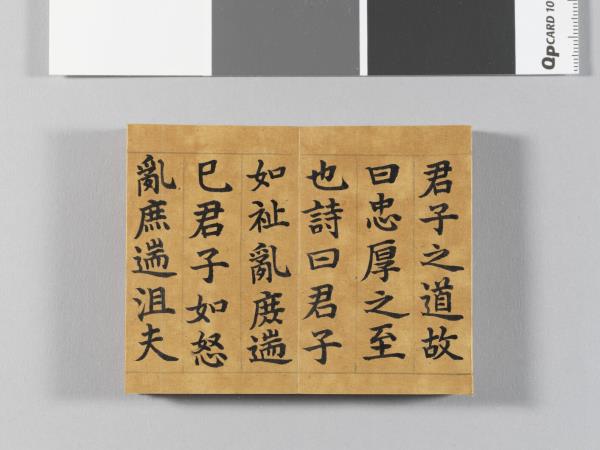 君子之道故
曰忠厚之至
也詩曰君子
如祉亂庶遄
已君子如怒
亂庶遄沮夫
Qp CARD 10